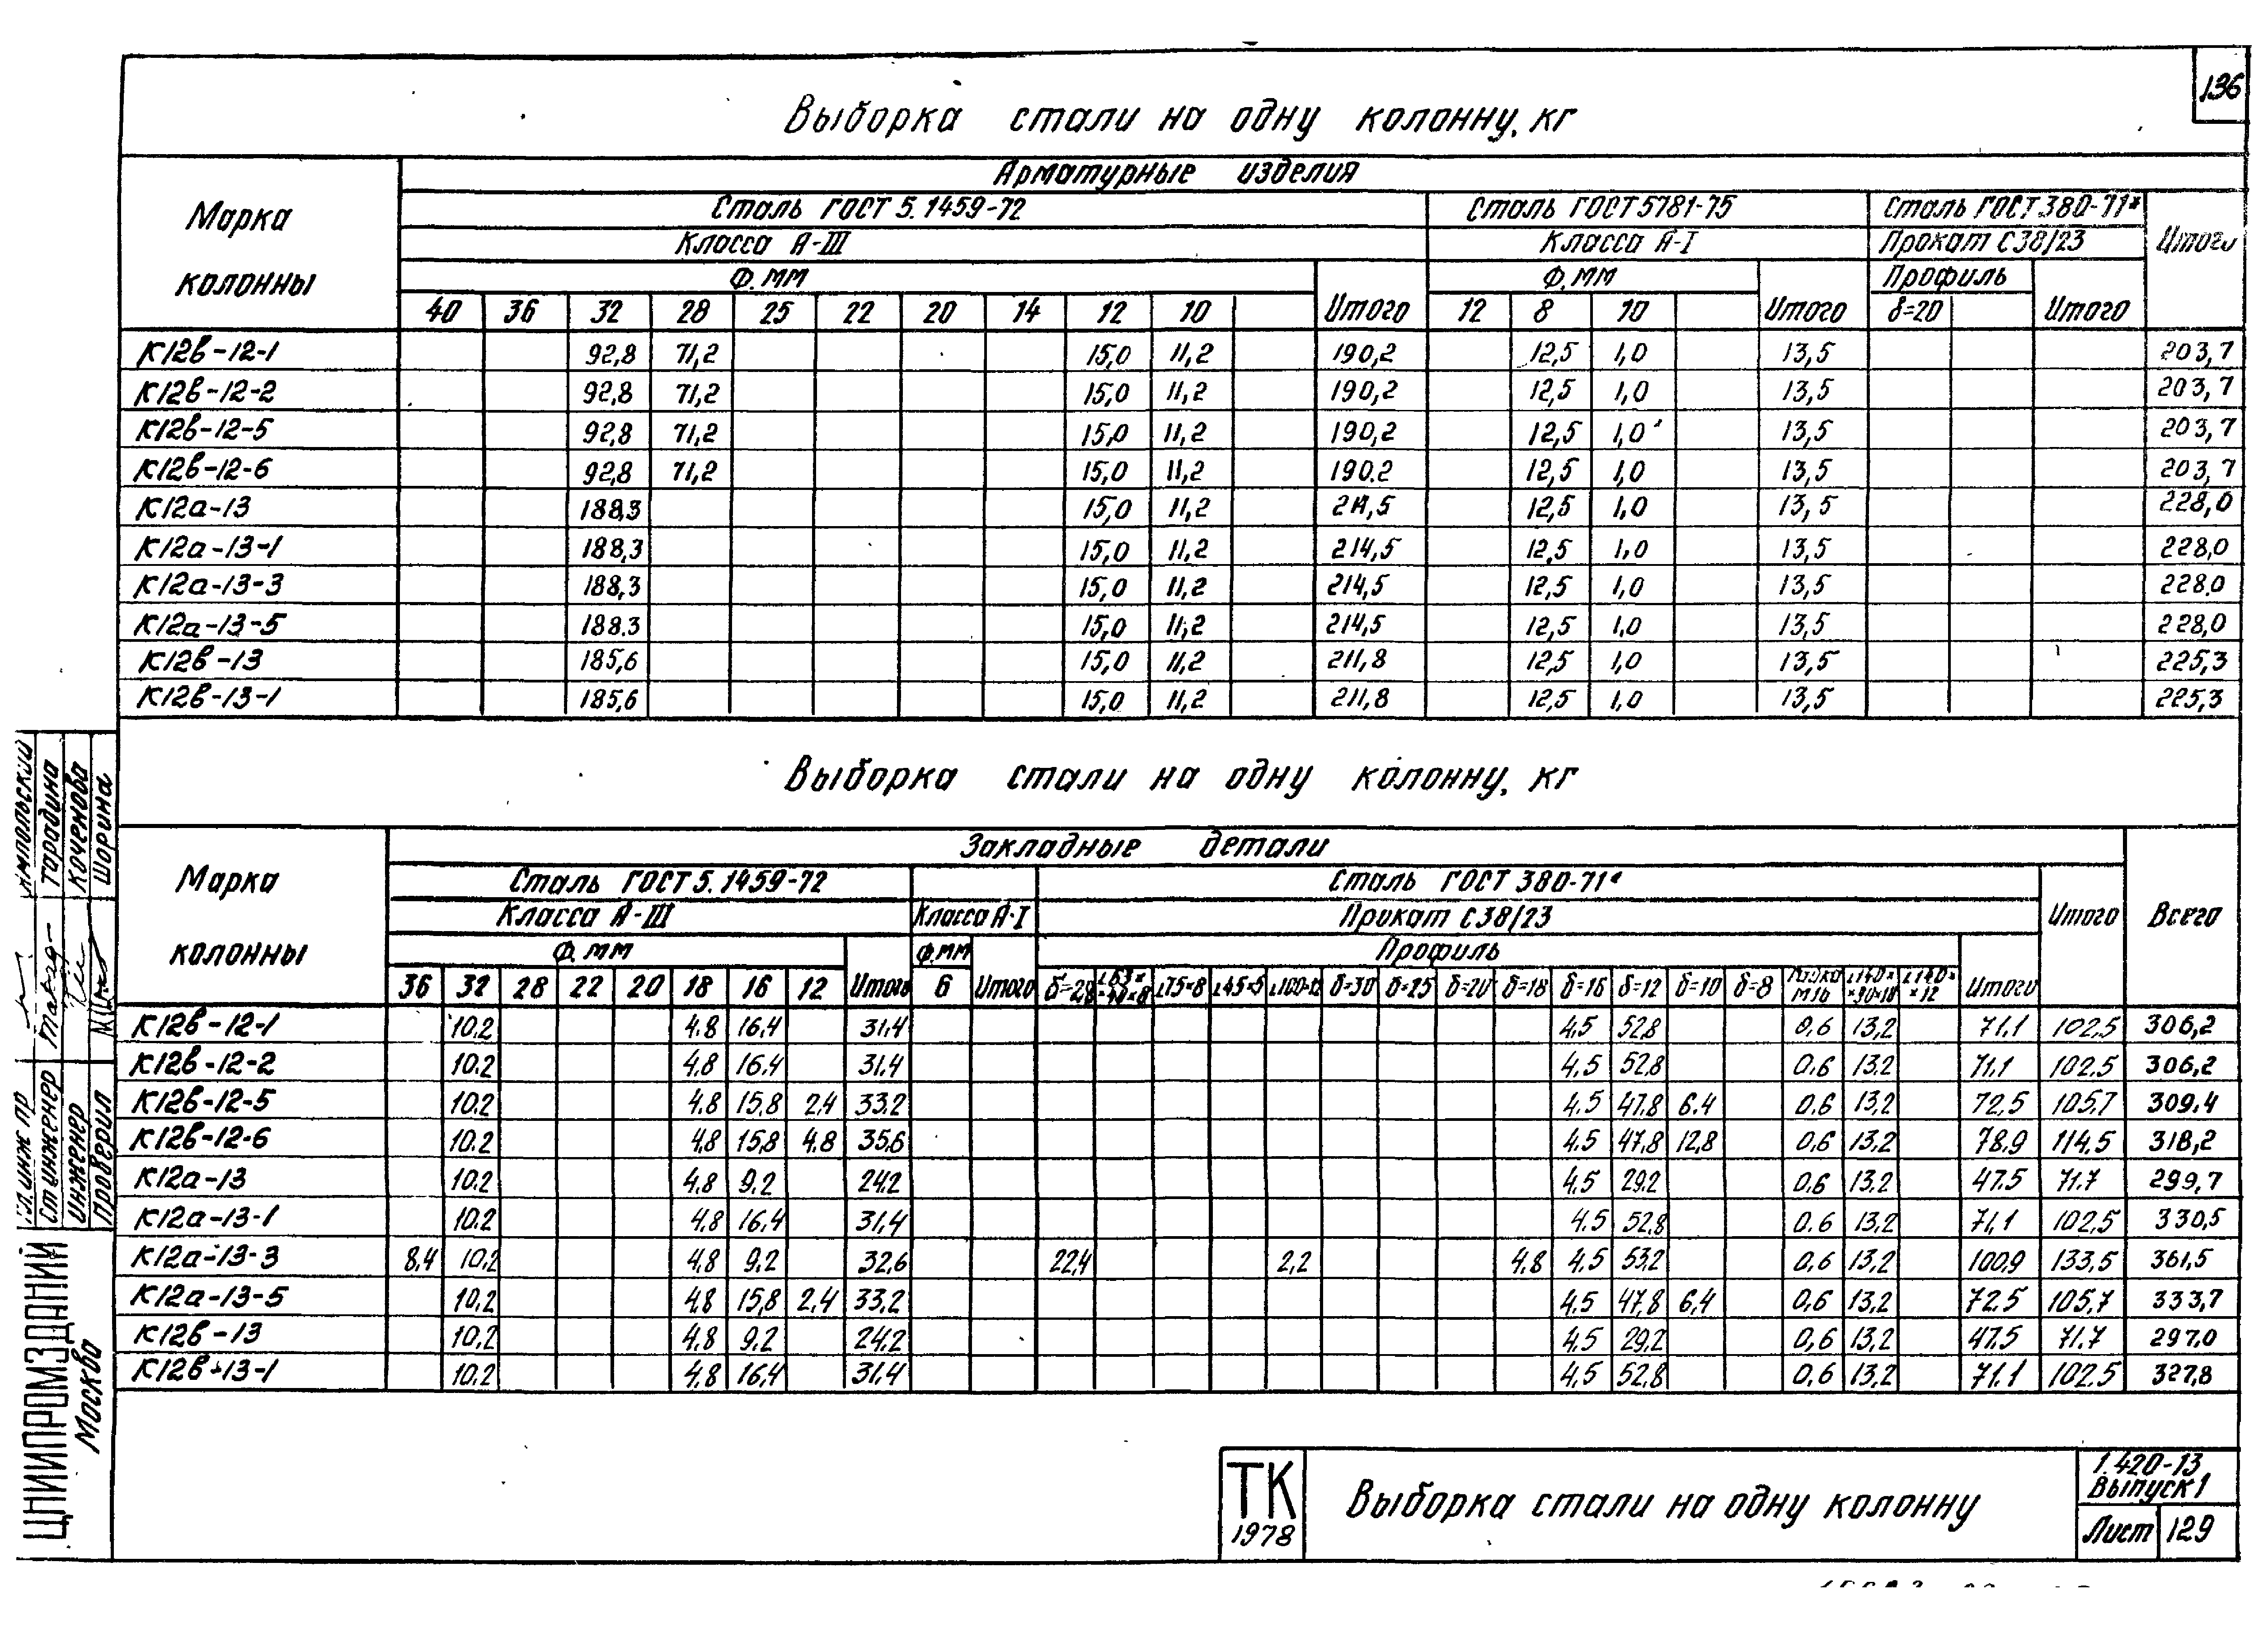 136
Выборка стали на одну колонну, кг
Марка колонны
Арматурные изделия
Сталь ГОСТ 5.1459-72 Сталь ГОСТ 5781-75 Сталь ГОСТ 380-71* Итого
Класса А-III Класса А-I Прокат С38/23
Ф, мм Итого Ф, мм Итого Профиль Итого
40 36 32 28 25 22 20 14 12 10 12 8 10 δ=20
К12в-12-1 92,8 71,2 15,0 11,2 190,2 12,5 1,0 13,5 203,7
К12в-12-2 92,8 71,2 15,0 11,2 190,2 12,5 1,0 13,5 203,7
К12в-12-5 92,8 71,2 15,0 11,2 190,2 12,5 1,0 13,5 203,7
К12в-12-6 92,8 71,2 15,0 11,2 190.2 12,5 1,0 13,5 203,7
К12а-13 188,3 15,0 11,2 214,5 12,5 1,0 13,5 228,0
К12а-13-1 188,3 15,0 11,2 214,5 12,5 1,0 13,5 228,0
К12а-13-3 188,3 15,0 11,2 214,5 12,5 1,0 13,5 228.0
К12а-13-5 188.3 15,0 11,2 214,5 12,5 1,0 13,5 228,0
К12в-13 185,6 15,0 11,2 211,8 12,5 1,0 13,5 225,3
К12в-13-1 185,6 15,0 11,2 211,8 12,5 1,0 13,5 225,3
Выборка стали на одну колонну, кг
Марка колонны
Закладные детали Всего
Сталь ГОСТ 5.1459-72 Сталь ГОСТ 380-71* Итого
Класса А-III Класса А-I Прокат С38/23
Ф, мм Итого Ф, мм Итого Профиль Итого
36 32 28 22 20 18 16 12 6 δ=28 ∟75×8 ∟45×5 ∟100×12 δ=30 δ=25 δ=20 δ=18 δ=16 δ=12 δ=10 δ=8 Гайка М16 ∟140××90×10 ∟140××12
К12в-12-1 10.2 4.8 16.4 31.4 4,5 52,8 0,6 13,2 71.1 102,5 306,2
К12в-12-2 10.2 4,8 16,4 31,4 4,5 52,8 0,6 13,2 71,1 102,5 306,2
К12в-12-5 10.2 4.8 15,8 2,4 33,2 4.5 47.8 6.4 0.6 13,2 72,5 105,7 309,4
К12в-12-6 10.2 4,8 15,8 4.8 35,6 4.5 47,8 12,8 0,6 13,2 78.9 114,5 318,2
К12а-13 10.2 4,8 9,2 24,2 4,5 29,2 0,6 13,2 47.5 71.7 299,7
К12а-13-1 10.2 4,8 16,4 31,4 4.5 52,8 0.6 13,2 71,1 102,5 330,5
К12а-13-3 8,4 10,2 4,8 9,2 32,6 22,4 2,2 4,8 4,5 53,2 0,6 13,2 100,9 133,5 361,5
К12а-13-5 10.2 4,8 15,8 2,4 33,2 4,5 47,8 6,4 0,6 13,2 72.5 105,7 333,7
К12в-13 10.2 4,8 9,2 24,2 4,5 29,2 0,6 13,2 47.5 71.7 297,0
К12в-13-1 10.2 4,8 16,4 31,4 4,5 52,8 0,6 13,2 71.1 102,5 327,8
Гл.инж пр
Ст инженер Тарадина
Инженер Коченова
Проверил Шорина
ЦНИИПРОМЗДАНИЙ
Москва
ТК
1978
Выборка стали на одну колонну
1.420-13
Выпуск 1
Лист 129